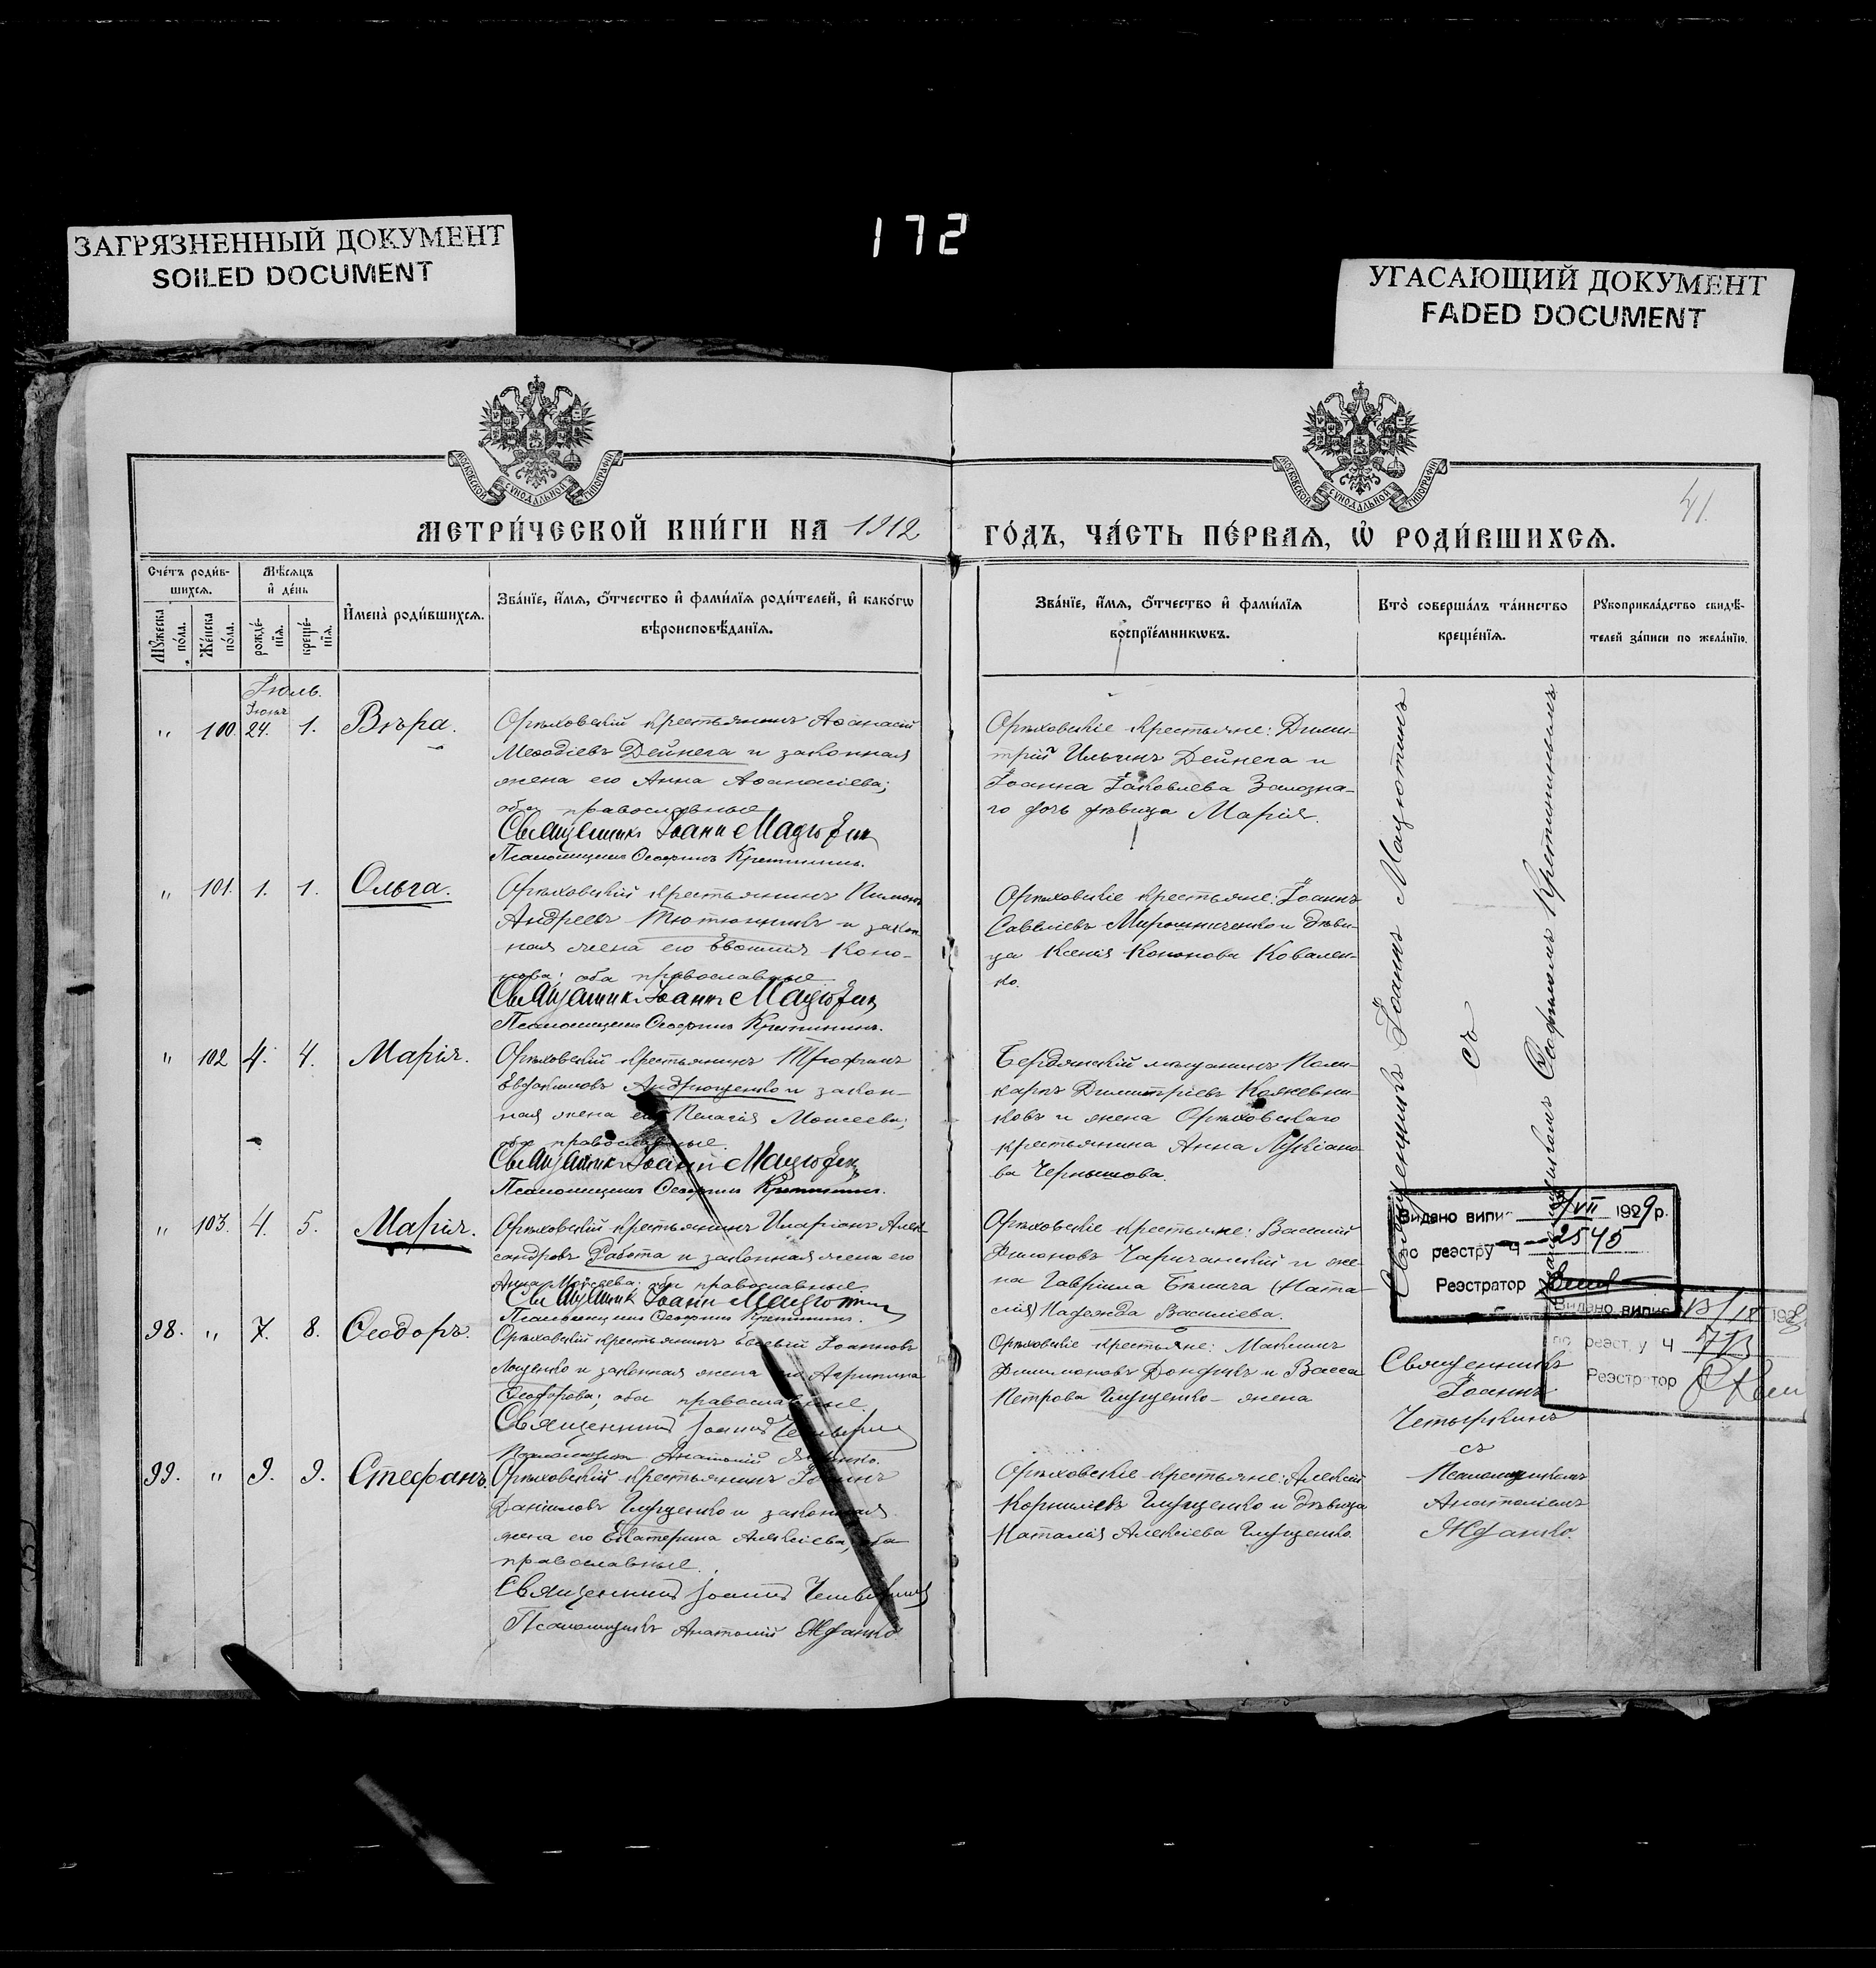 172
ЗАГРЯЗНЕННЫЙ ДОКУМЕНТ
SOILED DOCUMENT
УГАСАЮЩИЙ ДОКУМЕНТ
FADED DOCUMENT
МОСКОВСКОЙ СУНОДАЛЬНОЙ ТИПОГРАФІИ
МОСКОВСКОЙ СУНОДАЛЬНОЙ ТИПОГРАФІИ
41.
МЕТРИ́ЧЕСКОЙ КНИ́ГИ НА 1912
ГО́ДЪ, ЧА́СТЬ ПЕ́РВАѦ, Ѡ РОДИ́ВШИХСѦ.
Сче́тъ роди́в-
шихсѧ.
Мꙋ́жеска
по́ла.
Же́нска
по́ла.
Мѣ́сѧцъ
и҆ де́нь
рожде́-
нїѧ.
креще́-
нїѧ.
И҆мена̀ роди́вшихсѧ.
Зва́нїе, и҆́мѧ, о҆́тчество и҆ фами́лїѧ роди́телей, и҆ како́гѡ
вѣроисповѣ́данїѧ.
Зва́нїе, и҆́мѧ, о҆́тчество и҆ фами́лїѧ
воспрїе́мникѡвъ.
Кто̀ соверша́лъ та́инство
креще́нїѧ.
Рꙋкоприкла́дство свидѣ́-
телей за́писи по жела́нїю.
Іюль.
Іюнь
" 100. 24. 1. Вѣра.
Орѣховскій крестьянинъ Аѳанасій
Меѳодіевъ Дейнега и законная
жена его Анна Аѳанасіева;
оба православные
Священникъ Іоаннъ Мацютинъ
Псаломщикъ
Орѣховскіе крестьяне: Дими-
трій Ильинъ Дейнега и
Іоанна Іаковлева Залозна-
го дочь дѣвица Марія.
" 101. 1. 1. Ольга.
Орѣховскій крестьянинъ
Андреевъ Тютюнникъ и закон-
ная жена его Евѳимія Коно-
нова; оба православные
Священникъ Іоаннъ Мацютинъ
Псаломщикъ
Орѣховскіе крестьяне: Іоаннъ
Савеліевъ Мирошниченко и дѣви-
ца Ксенія Кононова Ковален-
ко.
" 102 4. 4. Марія.
Орѣховскій крестьянинъ Трофимъ
Евдокимовъ Андрющенко и закон-
ная жена его Пелагія Моисеева;
оба православные.
Священникъ Іоаннъ Мацютинъ
Псаломщикъ
Бердянскій мѣщанинъ Поли-
карпъ Димитріевъ Кожевни-
ковъ и жена Орѣховскаго
крестьянина Анна Лукіано-
ва Чернышова.
" 103. 4. 5. Марія.
Орѣховскій крестьянинъ Иларіонъ Алек-
сандровъ Работа и законная жена его
Анна Моисеева; оба православные.
Священникъ Іоаннъ Мацютинъ
Псаломщикъ
Орѣховскіе крестьяне: Василій
Филоновъ Чаричанскій и же-
на Гавріила Бѣлича (Ната-
лія) Надежда Василіева.
Священникъ Іоаннъ Мацютинъ
съ
98. " 7. 8. Ѳеодоръ.
Орѣховскій крестьянинъ Евсевій Іоанновъ
и законная жена его Агрипина
Ѳеодорова; оба православные.
Священникъ Іоаннъ
Псаломщикъ Анатолій Жданко.
Орѣховскіе крестьяне: Максимъ
Филимоновъ Донфикъ и Васса
Петрова Глущенко - жена
Священникъ
Іоаннъ
Четыркинъ
съ
Псаломщикомъ
Анатоліемъ
Жданко.
99. " 9. 9. Стефанъ.
Орѣховскій крестьянинъ Іоаннъ
Даніиловъ Глущенко и законная
жена его Екатерина Алексіева; оба
православные.
Священникъ Іоаннъ
Псаломщикъ Анатолій Жданко
Орѣховскіе крестьяне: Алексій
Корниліевъ Глущенко и дѣвица
Наталія Алексіева Глущенко.
Видано випис /VII 1929р.
по реэстру Ч 2545
Реэстратор
Видано випис 13/IX 192
по реэстру Ч 713
Реэстратор